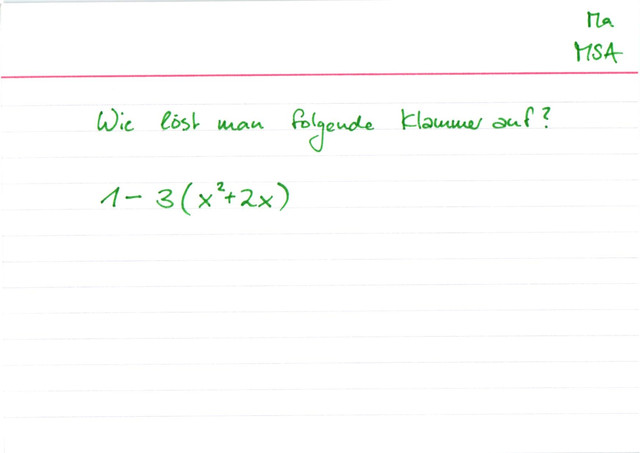 Ma
MSA
Wie löst man folgende Klammer auf?
1 - 3(x²+2x)